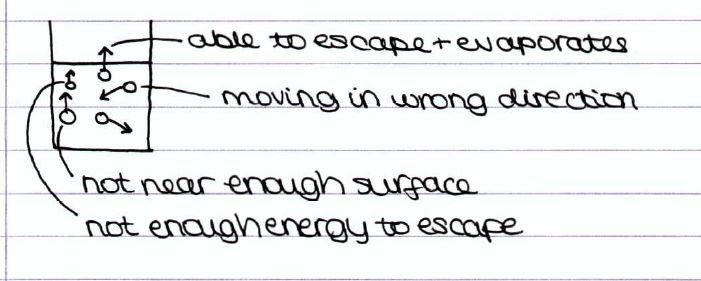 able to escape + evaporates
moving in wrong direction
not near enough surface
not enough energy to escape